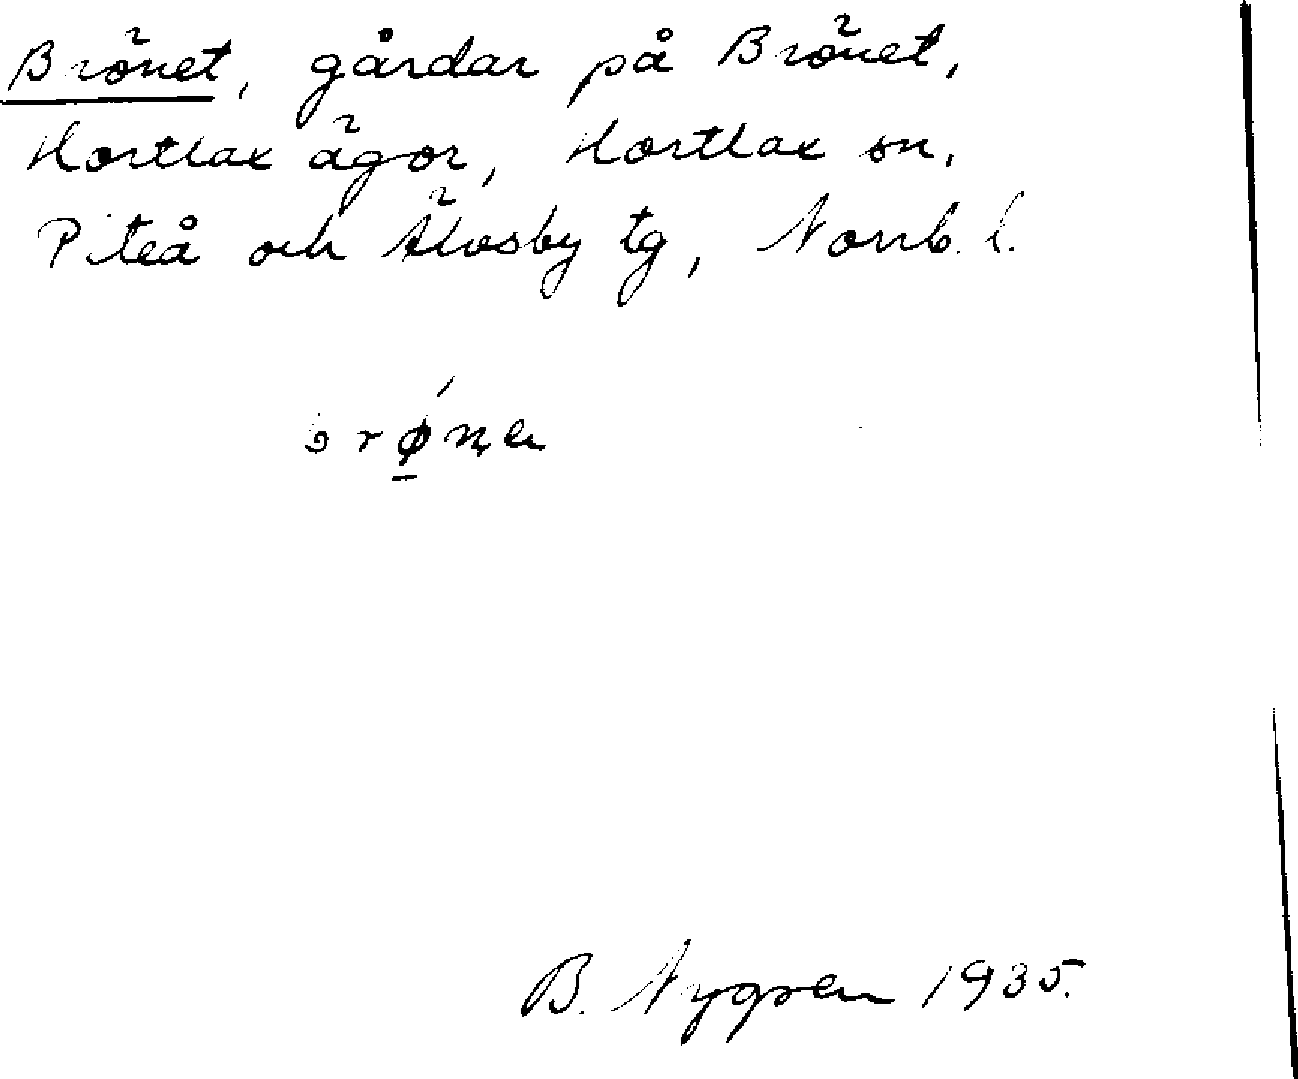 Brönet, gårdar på Brönet,
Hortlax ägor, Hortlax sn,
Piteå och Älvsby tg, Norrb. l.
B. Nygren 1935.